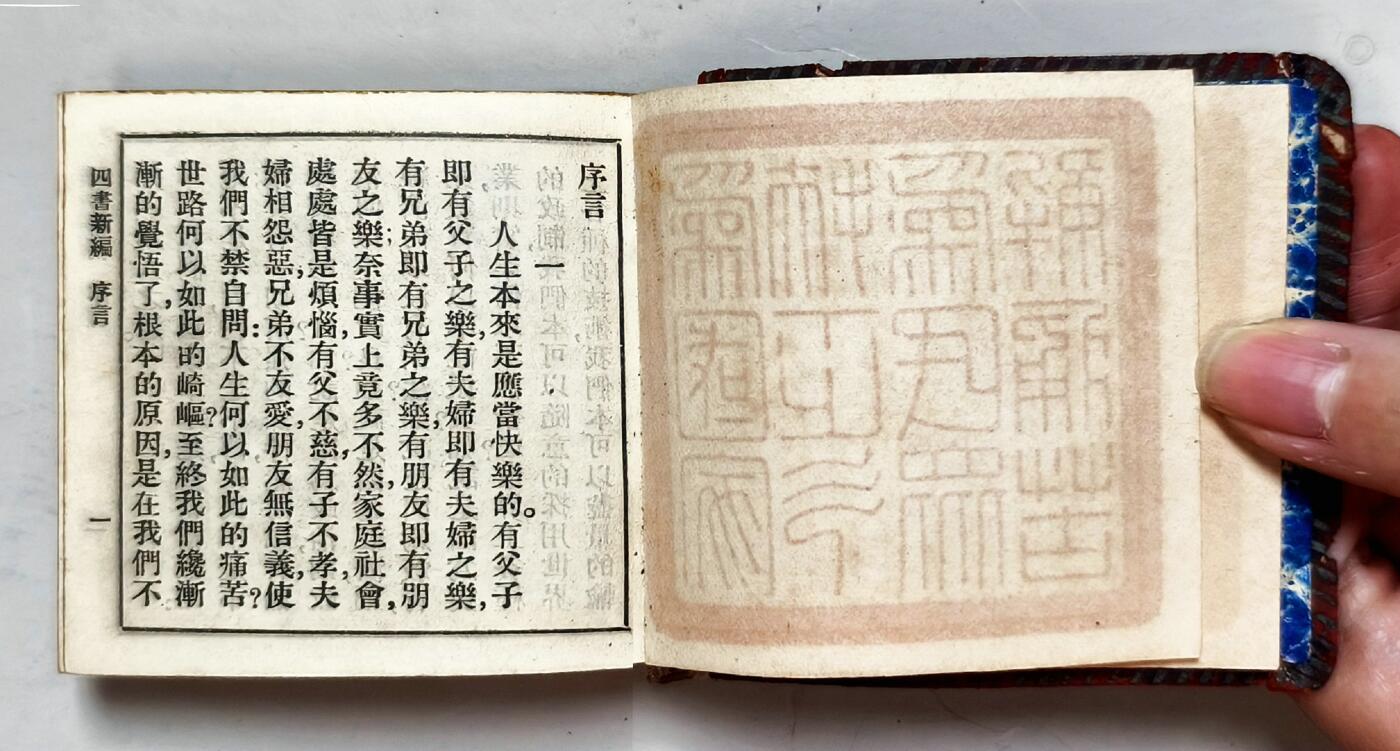 序言
一
人生本來是應當快樂的。有父子
即有父子之樂,有夫婦即有夫婦之樂,
有兄弟即有兄弟之樂,有朋友即有朋
友之樂;奈事實上竟多不然家庭社會,
處處皆是煩惱,有父不慈,有子不孝,夫
婦相怨惡,兄弟不友愛,朋友無信義,使
我們不禁自問:人生何以如此的痛苦?
世路何以如此的崎嶇?至終我們纔漸
漸的覺悟了,根本的原因,是在我們不
四書新編 序言 一